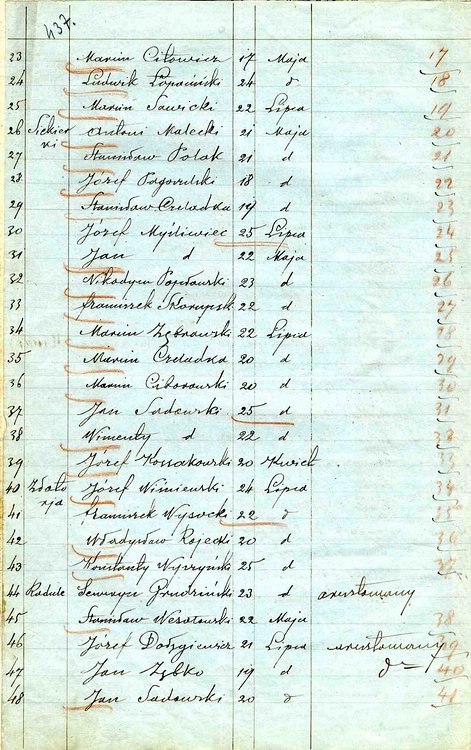 437.
23 Marcin Citowicz 17 Maja 17
24 Ludwik Łopaiński 24 d 18
25 Marcin Sawicki 22 Lipca 19
26 Siekierki Antoni Małecki 21 Maja 20
27 Stanisław Polak 21 d 21
28 Józef Pogorzelski 18 d 22
29 Stanisław Czeladka 19 d 23
30 Józef Myśliwiec 25 Lipca 24
31 Jan d 22 Maja 25
32 Nikodym Popławski 23 d 26
33 Franciszek Skorupsk 22 d 27
34 Marcin Zębrowski 22 Lipca 28
35 Marcin Czeladka 20 d 29
36 Marcin Ciborowski 20 d 30
37 Jan Sadowski 25 d 31
38 Wincenty d 22 d 32
39 Józef Kossakowski 20 Kwiet 33
40 Józef Wiśniewski 24 Lipca 34
41 Franciszek Wysocki 22 d 35
42 Władysław Rojecki 20 d 36
43 Konstanty Wyrzyński 25 d 37
44 Radule Seweryn Grodziński 23 d aresztowany
45 Stanisław Wesołowski 22 Maja 38
46 Józef Dołęgiewicz 21 Lipca aresztowany 39
47 Jan Zębko 19 d d 40
48 Jan Sadowski 20 d 41